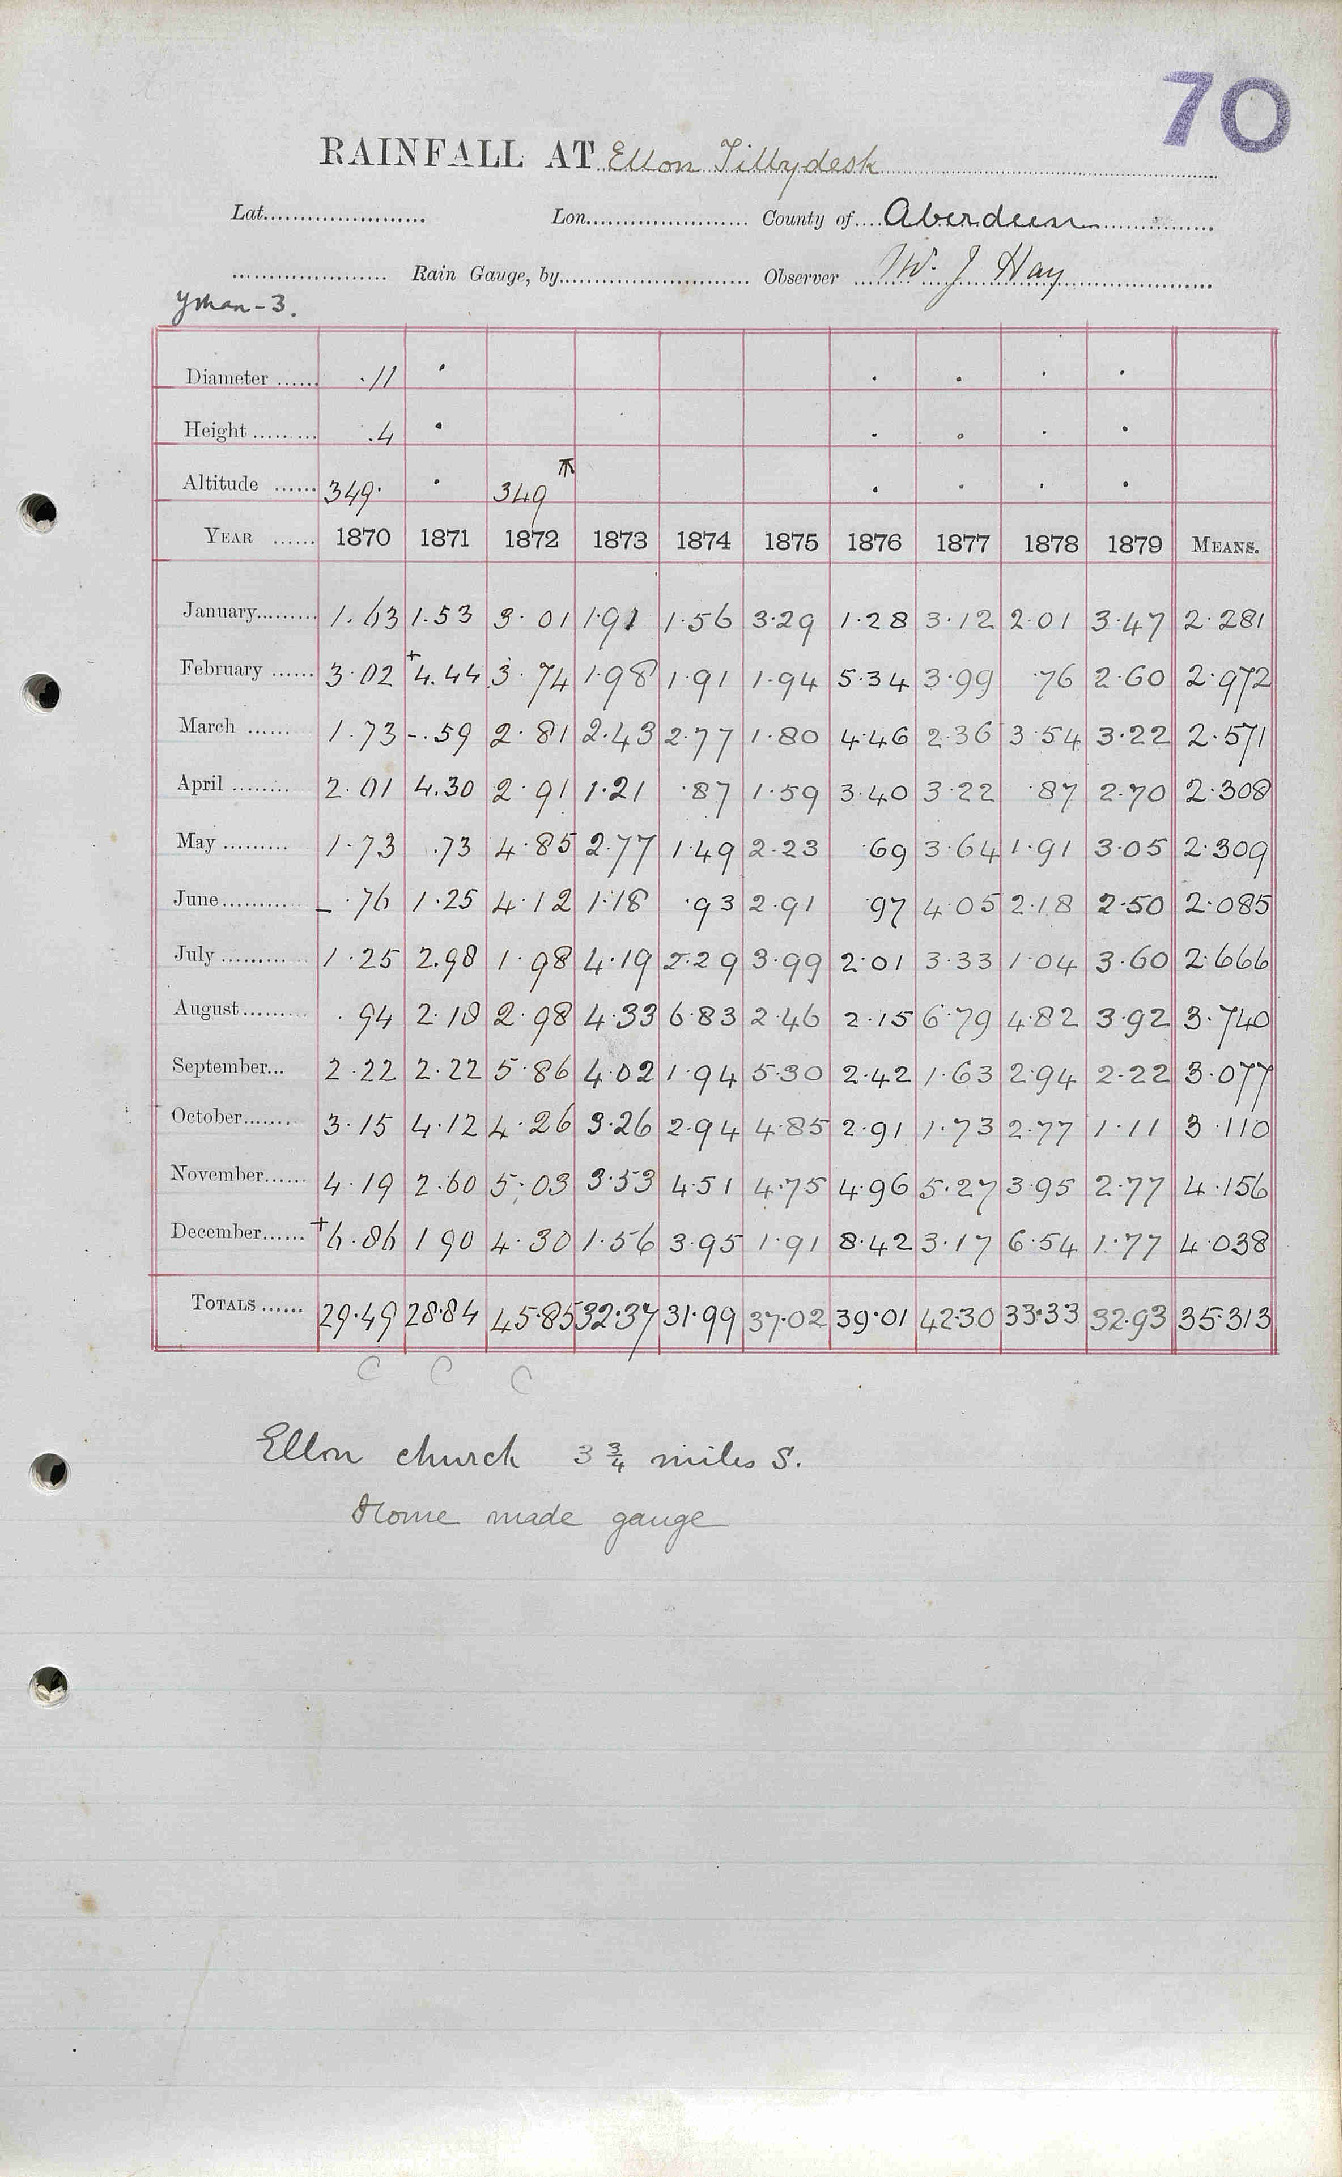 70
RAINFALL AT Ellon Tillydesk
Lat. Lon. County of Aberdeen
Rain Gauge, by Observer W. J Hay
Diameter ·11
Height .4
Altitude 349· 349
YEAR 1870 1871 1872 1873 1874 1875 1876 1877 1878 1879 MEANS.
January 1·63 1·53 3·01 1·91 1·56 3·29 1·28 3·12 2·01 3·47 2·281
February 3·02 +4.44 3·74 1·98 1·91 1·94 5·34 3·99 ·76 2·60 2·972
March 1·73 -.59 2·81 2·43 2·77 1·80 4·46 2·36 3·54 3·22 2·571
April 2·01 4.30 2·91 1·21 ·87 1·59 3·40 3·22 ·87 2·70 2·308
May 1·73 .73 4·85 2·77 1·49 2·23 ·69 3·64 1·91 3·05 2·309
June - ·76 1·25 4·12 1·18 ·93 2·91 ·97 4·05 2·18 2·50 2·085
July 1·25 2.98 1·98 4·19 2·29 3·99 2·01 3·33 1·04 3·60 2·666
August ·94 2·18 2·98 4·33 6·83 2·46 2·15 6·79 4·82 3·92 3·740
September... 2·22 2·22 5·86 4·02 1·94 5·30 2·42 1·63 2·94 2·22 3·077
October 3·15 4·12 4·26 3·26 2·94 4·85 2·91 1·73 2·77 1·11 3·110
November 4·19 2·60 5·03 3·53 4·51 4·75 4·96 5·27 3·95 2·77 4·156
December +6·86 1 90 4·30 1·56 3·95 1·91 8·42 3·17 6·54 1·77 4·038
TOTALS 29·49 28·84 45·85 32·37 31·99 37·02 39·01 42·30 33·33 32·93 35·313
C C C
Ellon church 3 3/4 miles S.
Home made gauge